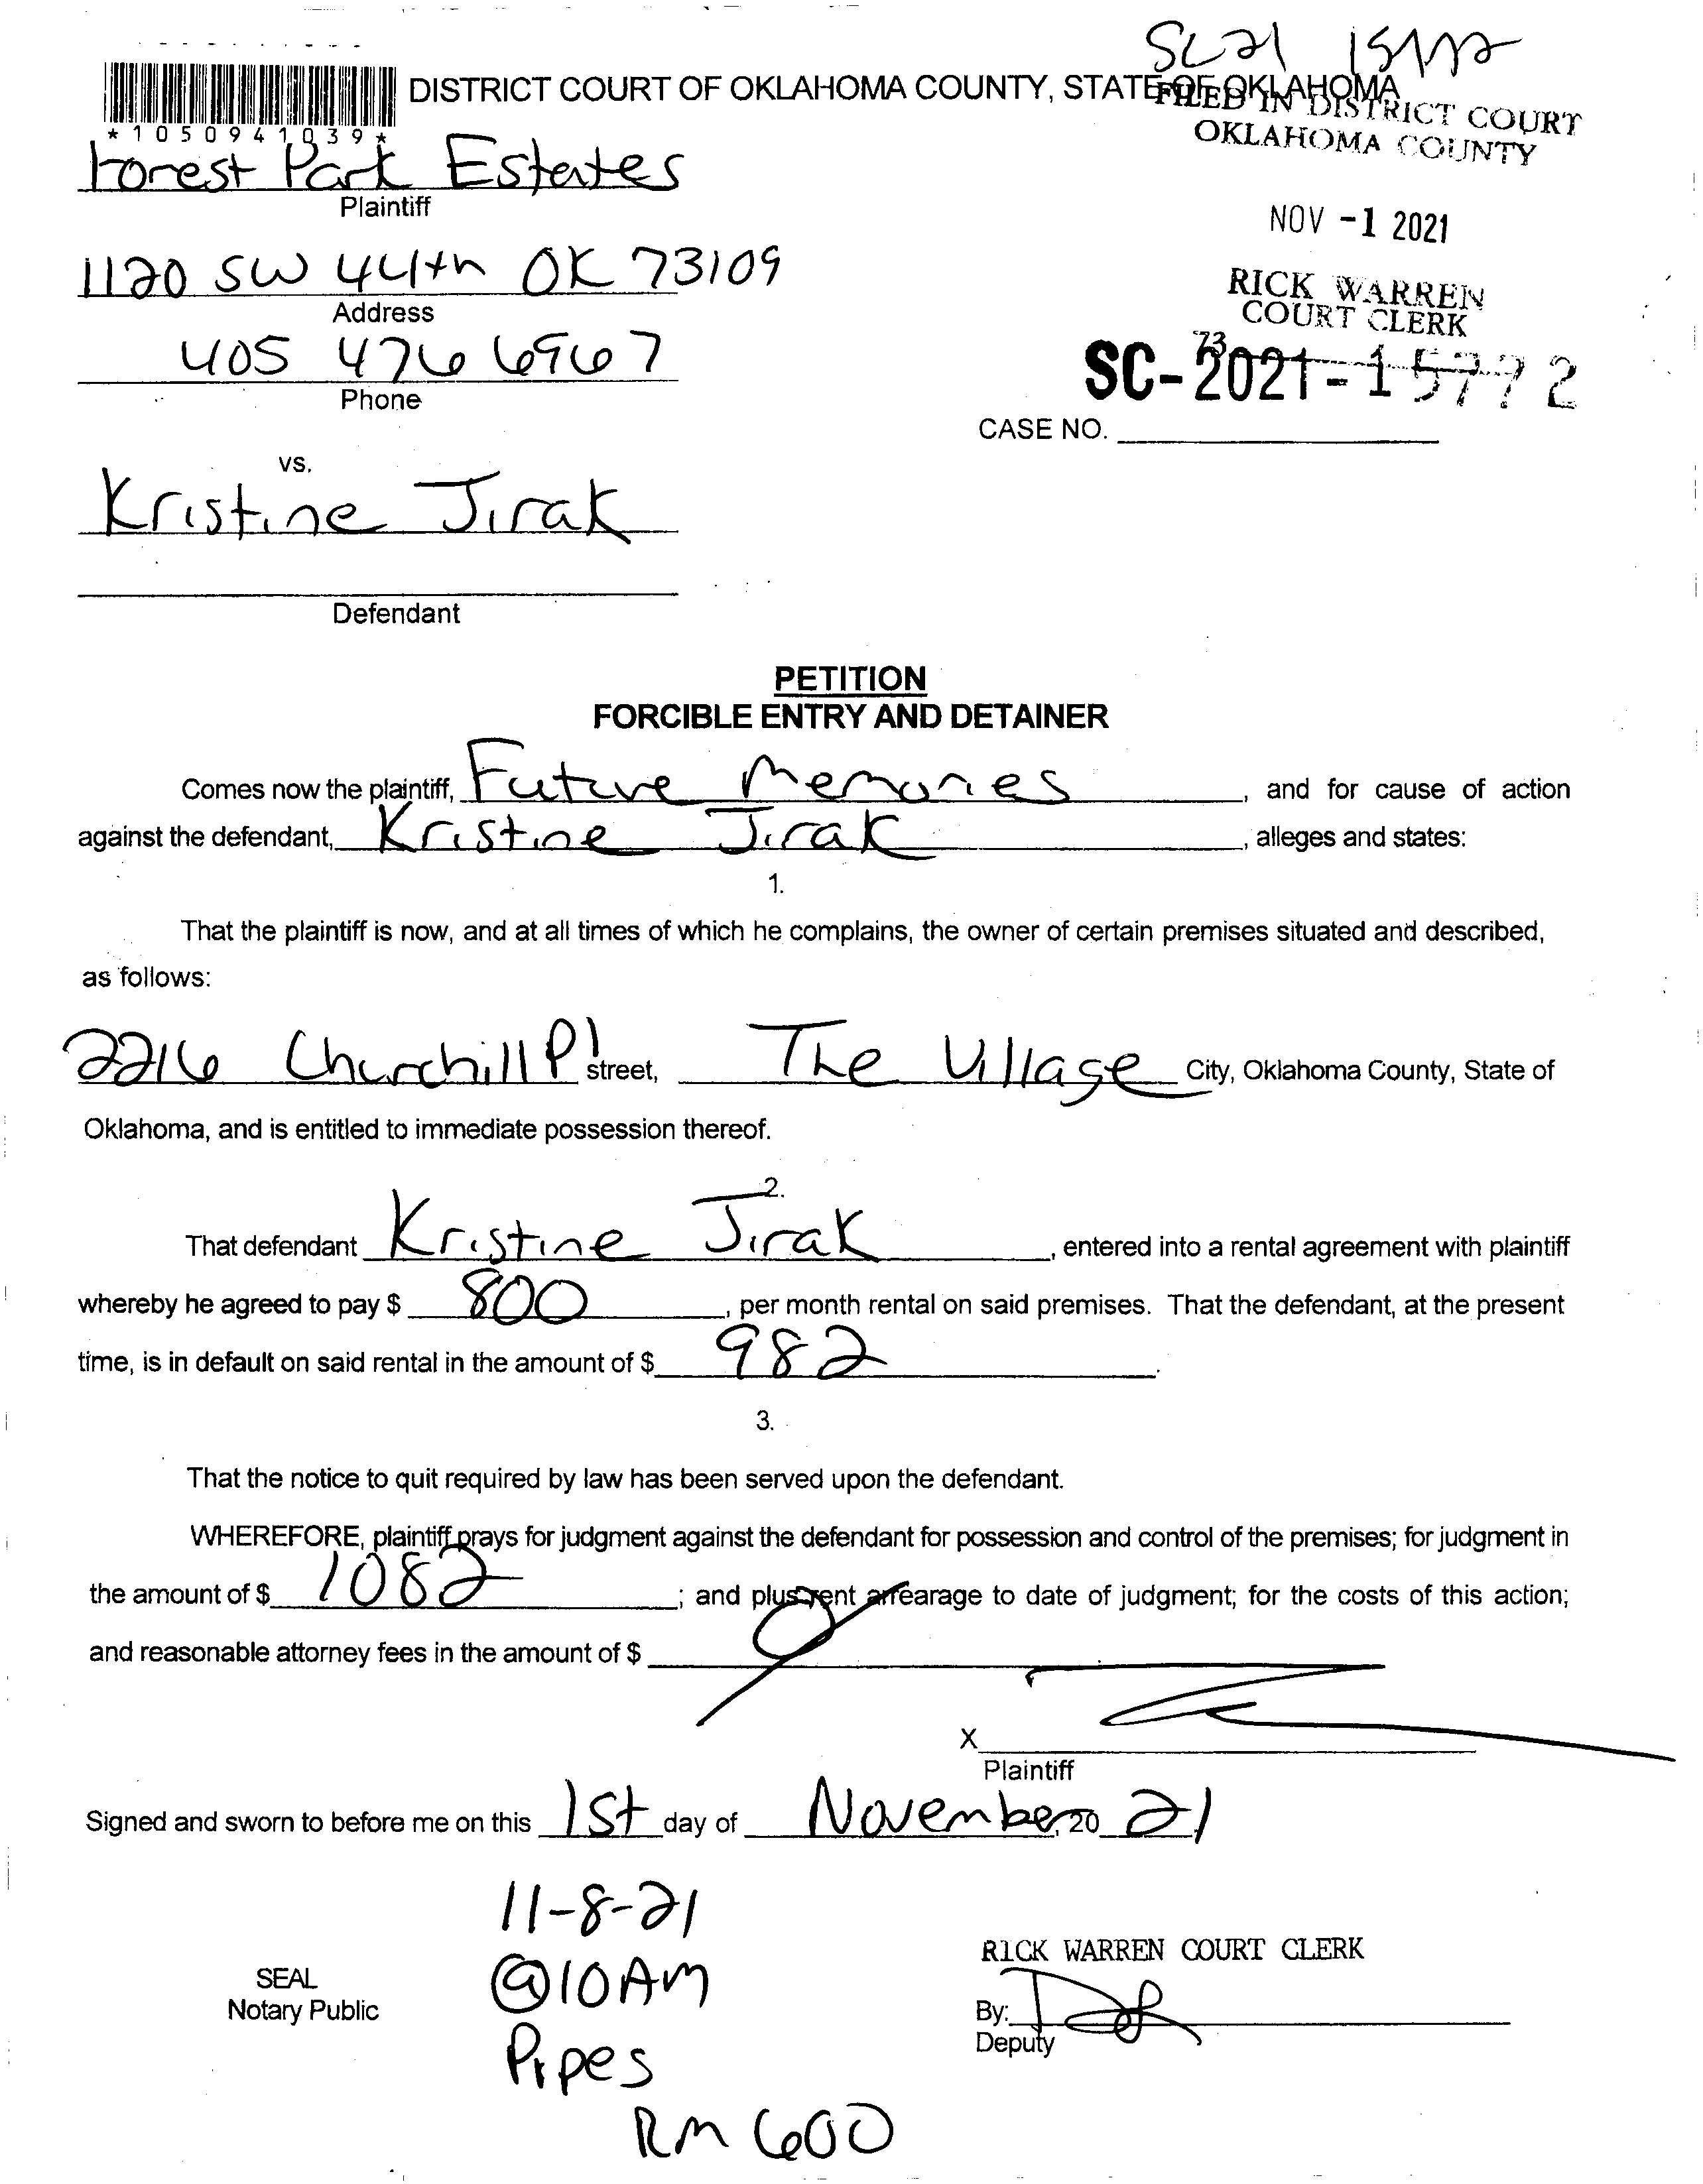 SC21 15772
DISTRICT COURT OF OKLAHOMA COUNTY, STATE OF OKLAHOMA
*1050941039*
FILED IN DISTRICT COURT
OKLAHOMA COUNTY
Forest Park Estates
Plaintiff
NOV -1 2021
1120 SW 44th OK 73109
Address
RICK WARREN
COURT CLERK
405 476 6967
Phone
73
SC-2021-15772
CASE NO.
vs.
Kristine Jirak
Defendant
PETITION
FORCIBLE ENTRY AND DETAINER
Comes now the plaintiff, Future Memories, and for cause of action
against the defendant, Kristine Jirak, alleges and states:
1.
That the plaintiff is now, and at all times of which he complains, the owner of certain premises situated and described,
as follows:
2216 Churchill Pl street, The Village City, Oklahoma County, State of
Oklahoma, and is entitled to immediate possession thereof.
2.
That defendant Kristine Jirak, entered into a rental agreement with plaintiff
whereby he agreed to pay $ 800, per month rental on said premises. That the defendant, at the present
time, is in default on said rental in the amount of $ 982.
3.
That the notice to quit required by law has been served upon the defendant.
WHEREFORE, plaintiff prays for judgment against the defendant for possession and control of the premises; for judgment in
the amount of $ 1082; and plus rent arrearage to date of judgment; for the costs of this action;
and reasonable attorney fees in the amount of $
X
Plaintiff
Signed and sworn to before me on this 1st day of November, 20 21
11-8-21
@10AM
Pipes
RM 600
SEAL
Notary Public
RICK WARREN COURT CLERK
By:
Deputy